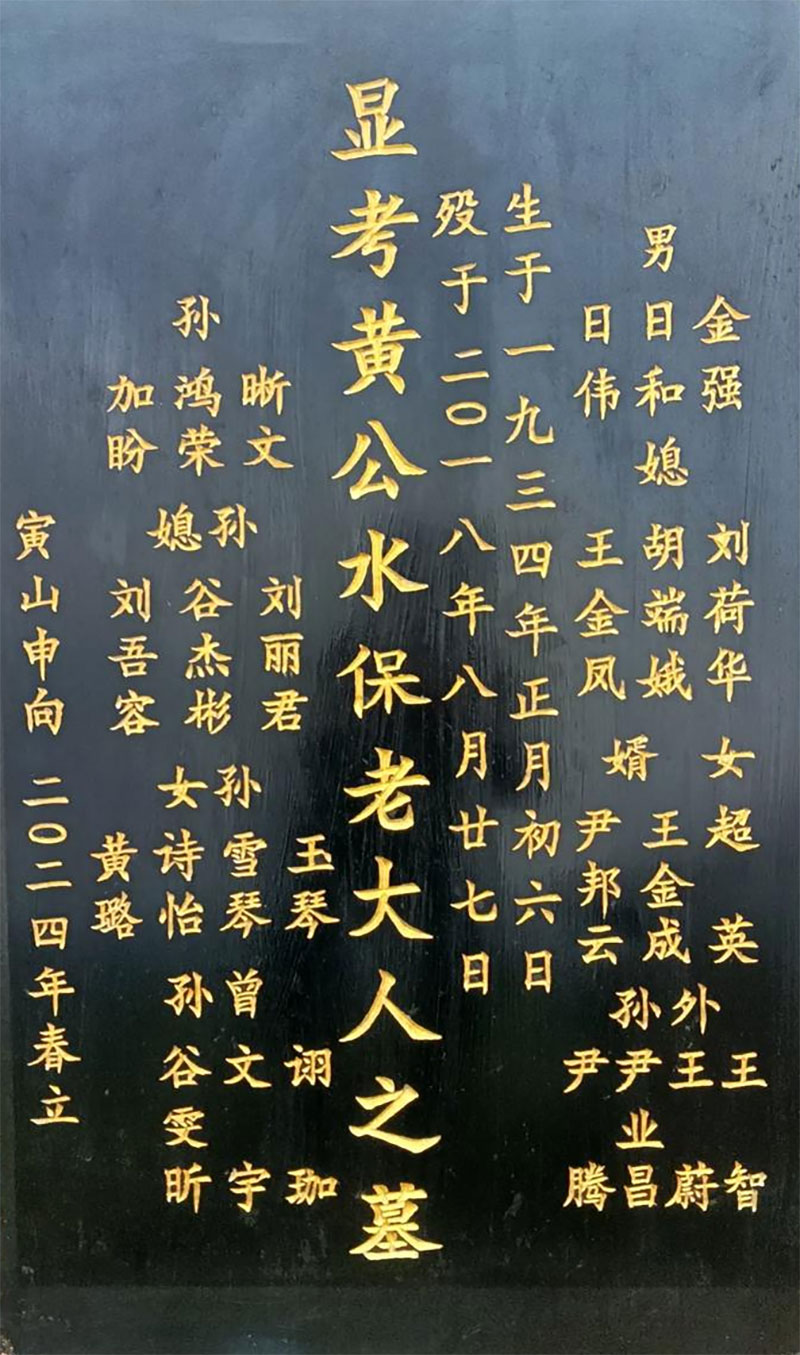 金强
男日和
日伟
媳
刘荷华
胡端娥
王金凤
女超英
婿
王金成
尹邦云
外孙
王智
王蔚
尹业昌
尹腾
生于一九三四年正月初六日
殁于二〇一八年八月廿七日
显考黄公水保老大人之墓
孙
晰文
鸿荣
加盼
孙媳
刘丽君
谷杰彬
刘吾容
孙女
玉琴
雪琴
诗怡
黄璐
曾孙
诩珈
文宇
谷雯昕
寅山申向 二〇二四年春立